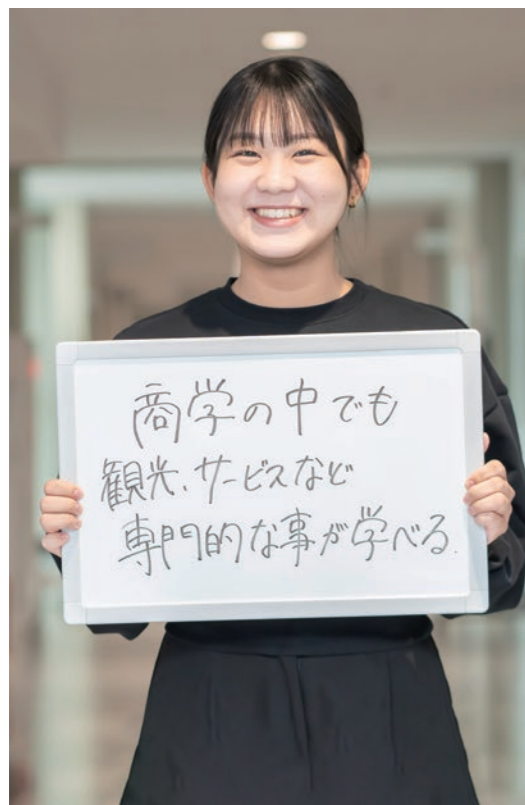 商学の中でも
観光、サービスなど
専門的な事が学べる.